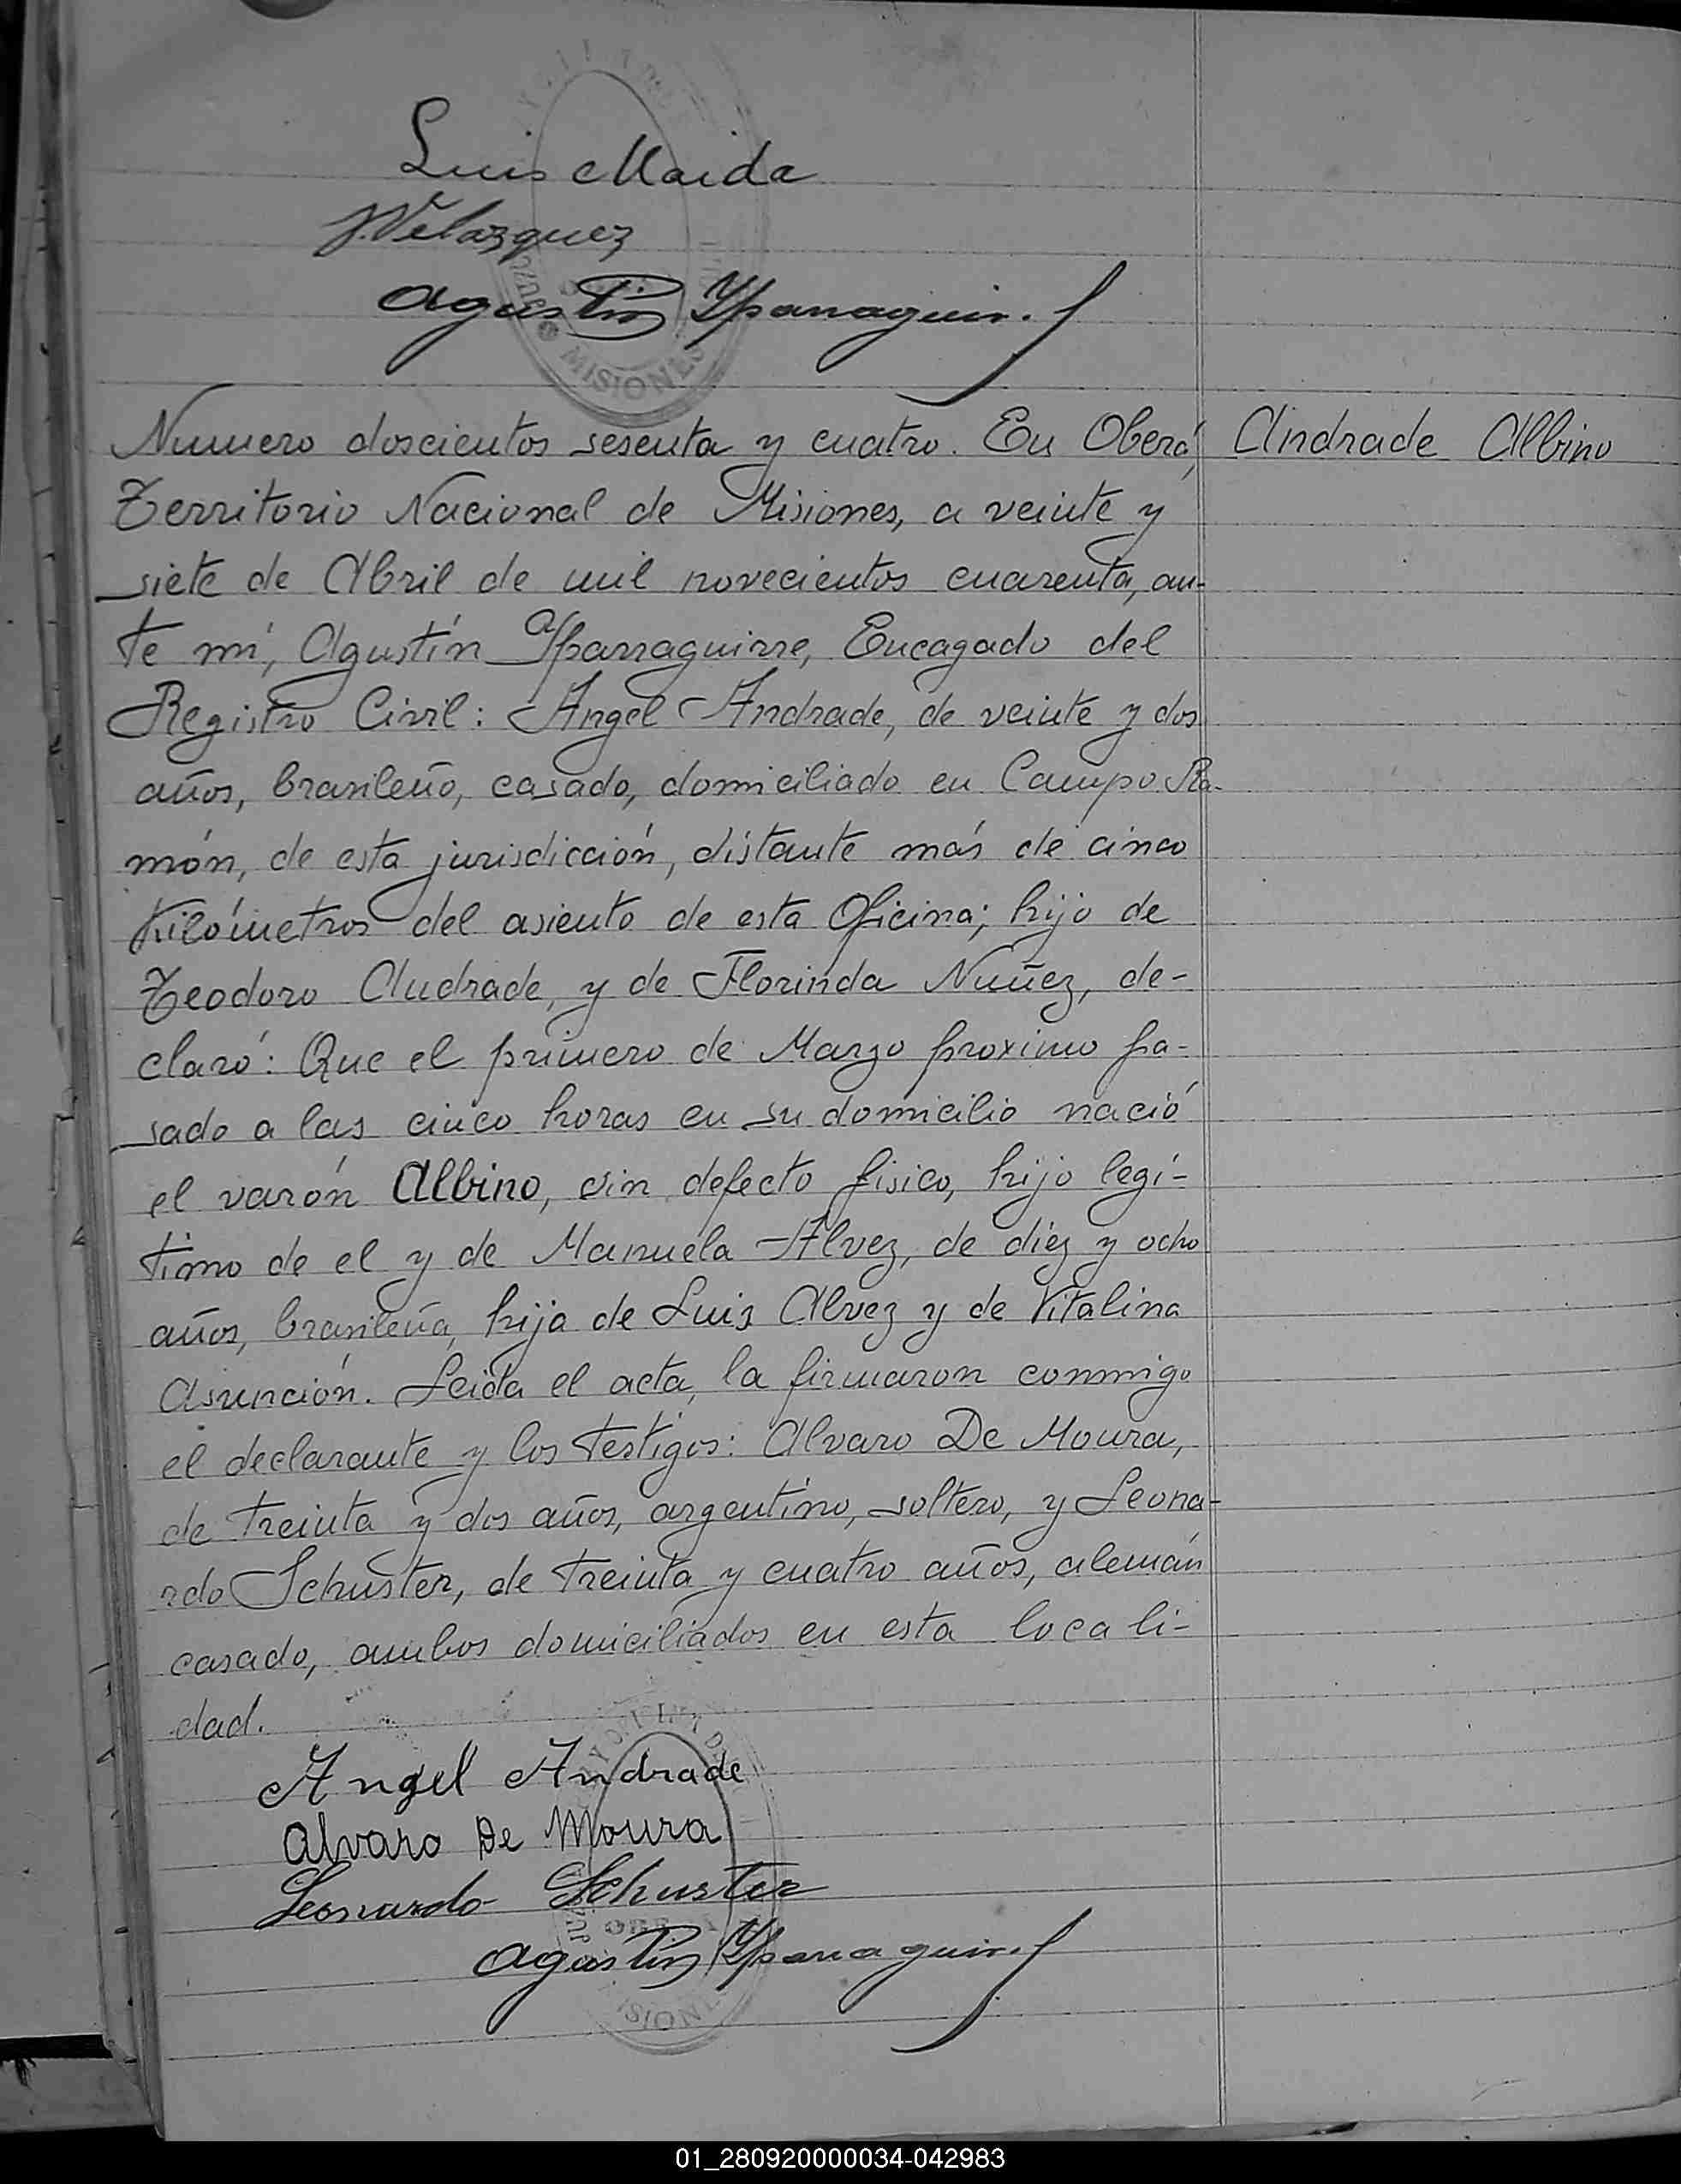 Luis Maida
J. Velazquez
Agustin Yparraguirre
Numero doscientos sesenta y cuatro. En Oberá, Andrade Albino
Territorio Nacional de Misiones, a veinte y
siete de Abril de mil novecientos cuarenta, an-
te mí, Agustín Yparraguirre, Encagado del
Registro Civil: Angel Andrade, de veinte y dos
años, brasileño, casado, domiciliado en Campo Ra-
món, de esta jurisdicción, distante más de cinco
Kilómetros del asiento de esta Oficina; hijo de
Teodoro Andrade, y de Florinda Nuñez, de-
claró: Que el primero de Marzo proximo pa-
sado a las cinco horas en su domicilio nació
el varón Albino, sin defecto fisico, hijo legí-
timo de el y de Manuela Alvez, de diez y ocho
años, brasileña, hija de Luis Alvez y de Vitalina
Asunción. Leida el acta, la firmaron conmigo
el declarante y los testigos: Alvaro De Moura,
de treinta y dos años, argentino, soltero, y Leona-
rdo Schuster, de treinta y cuatro años, alemán
casado, ambos domiciliados en esta locali-
dad.
Angel Andrade
Alvaro De Moura
Leonardo Schuster
Agustin Yparraguirre
MISIONES
01_280920000034-042983